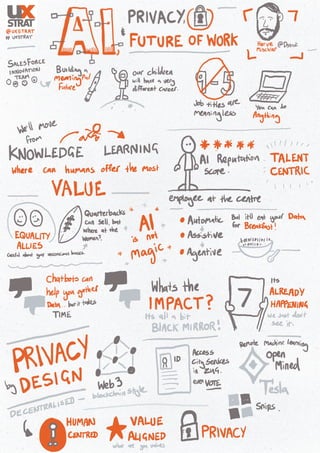 UX
STRAT
@UXSTRAT
# UXSTRAT
AI,
PRIVACY,
& FUTURE OF WORK
SALESFORCE
INNOVATION
TEAM
Building a
meaningful
Future
our children
will have a very
different career.
Job titles are
meaningless
You can be
Anything
We'll move
from
KNOWLEDGE
LEARNING
Where can humans offer the most
VALUE
AI Reputation
Score.
TALENT
CENTRIC
employee at the centre
EQUALITY
ALLIES
Careful about your unconscious biases
Quarterbacks
can sell, but
where at the
Women?
AI
is not
magic
Automatic
Assistive
Agentive
But it'll eat your Data
for Breakfast!
Chatbots can
help you gather
Data... but it takes
TIME
Whats the
IMPACT?
Its all a bit
BLACK MIRROR!
7
Its
ALREADY
HAPPENING
we just don't
see it.
PRIVACY
by DESIGN
DECENTRALISED
Web 3
blockchain style
ID
Access
City Services
and VOTE
Remote Machine learning
Open
Mined
Tesla
Snips
HUMAN
CENTRED
VALUE
ALIGNED
PRIVACY